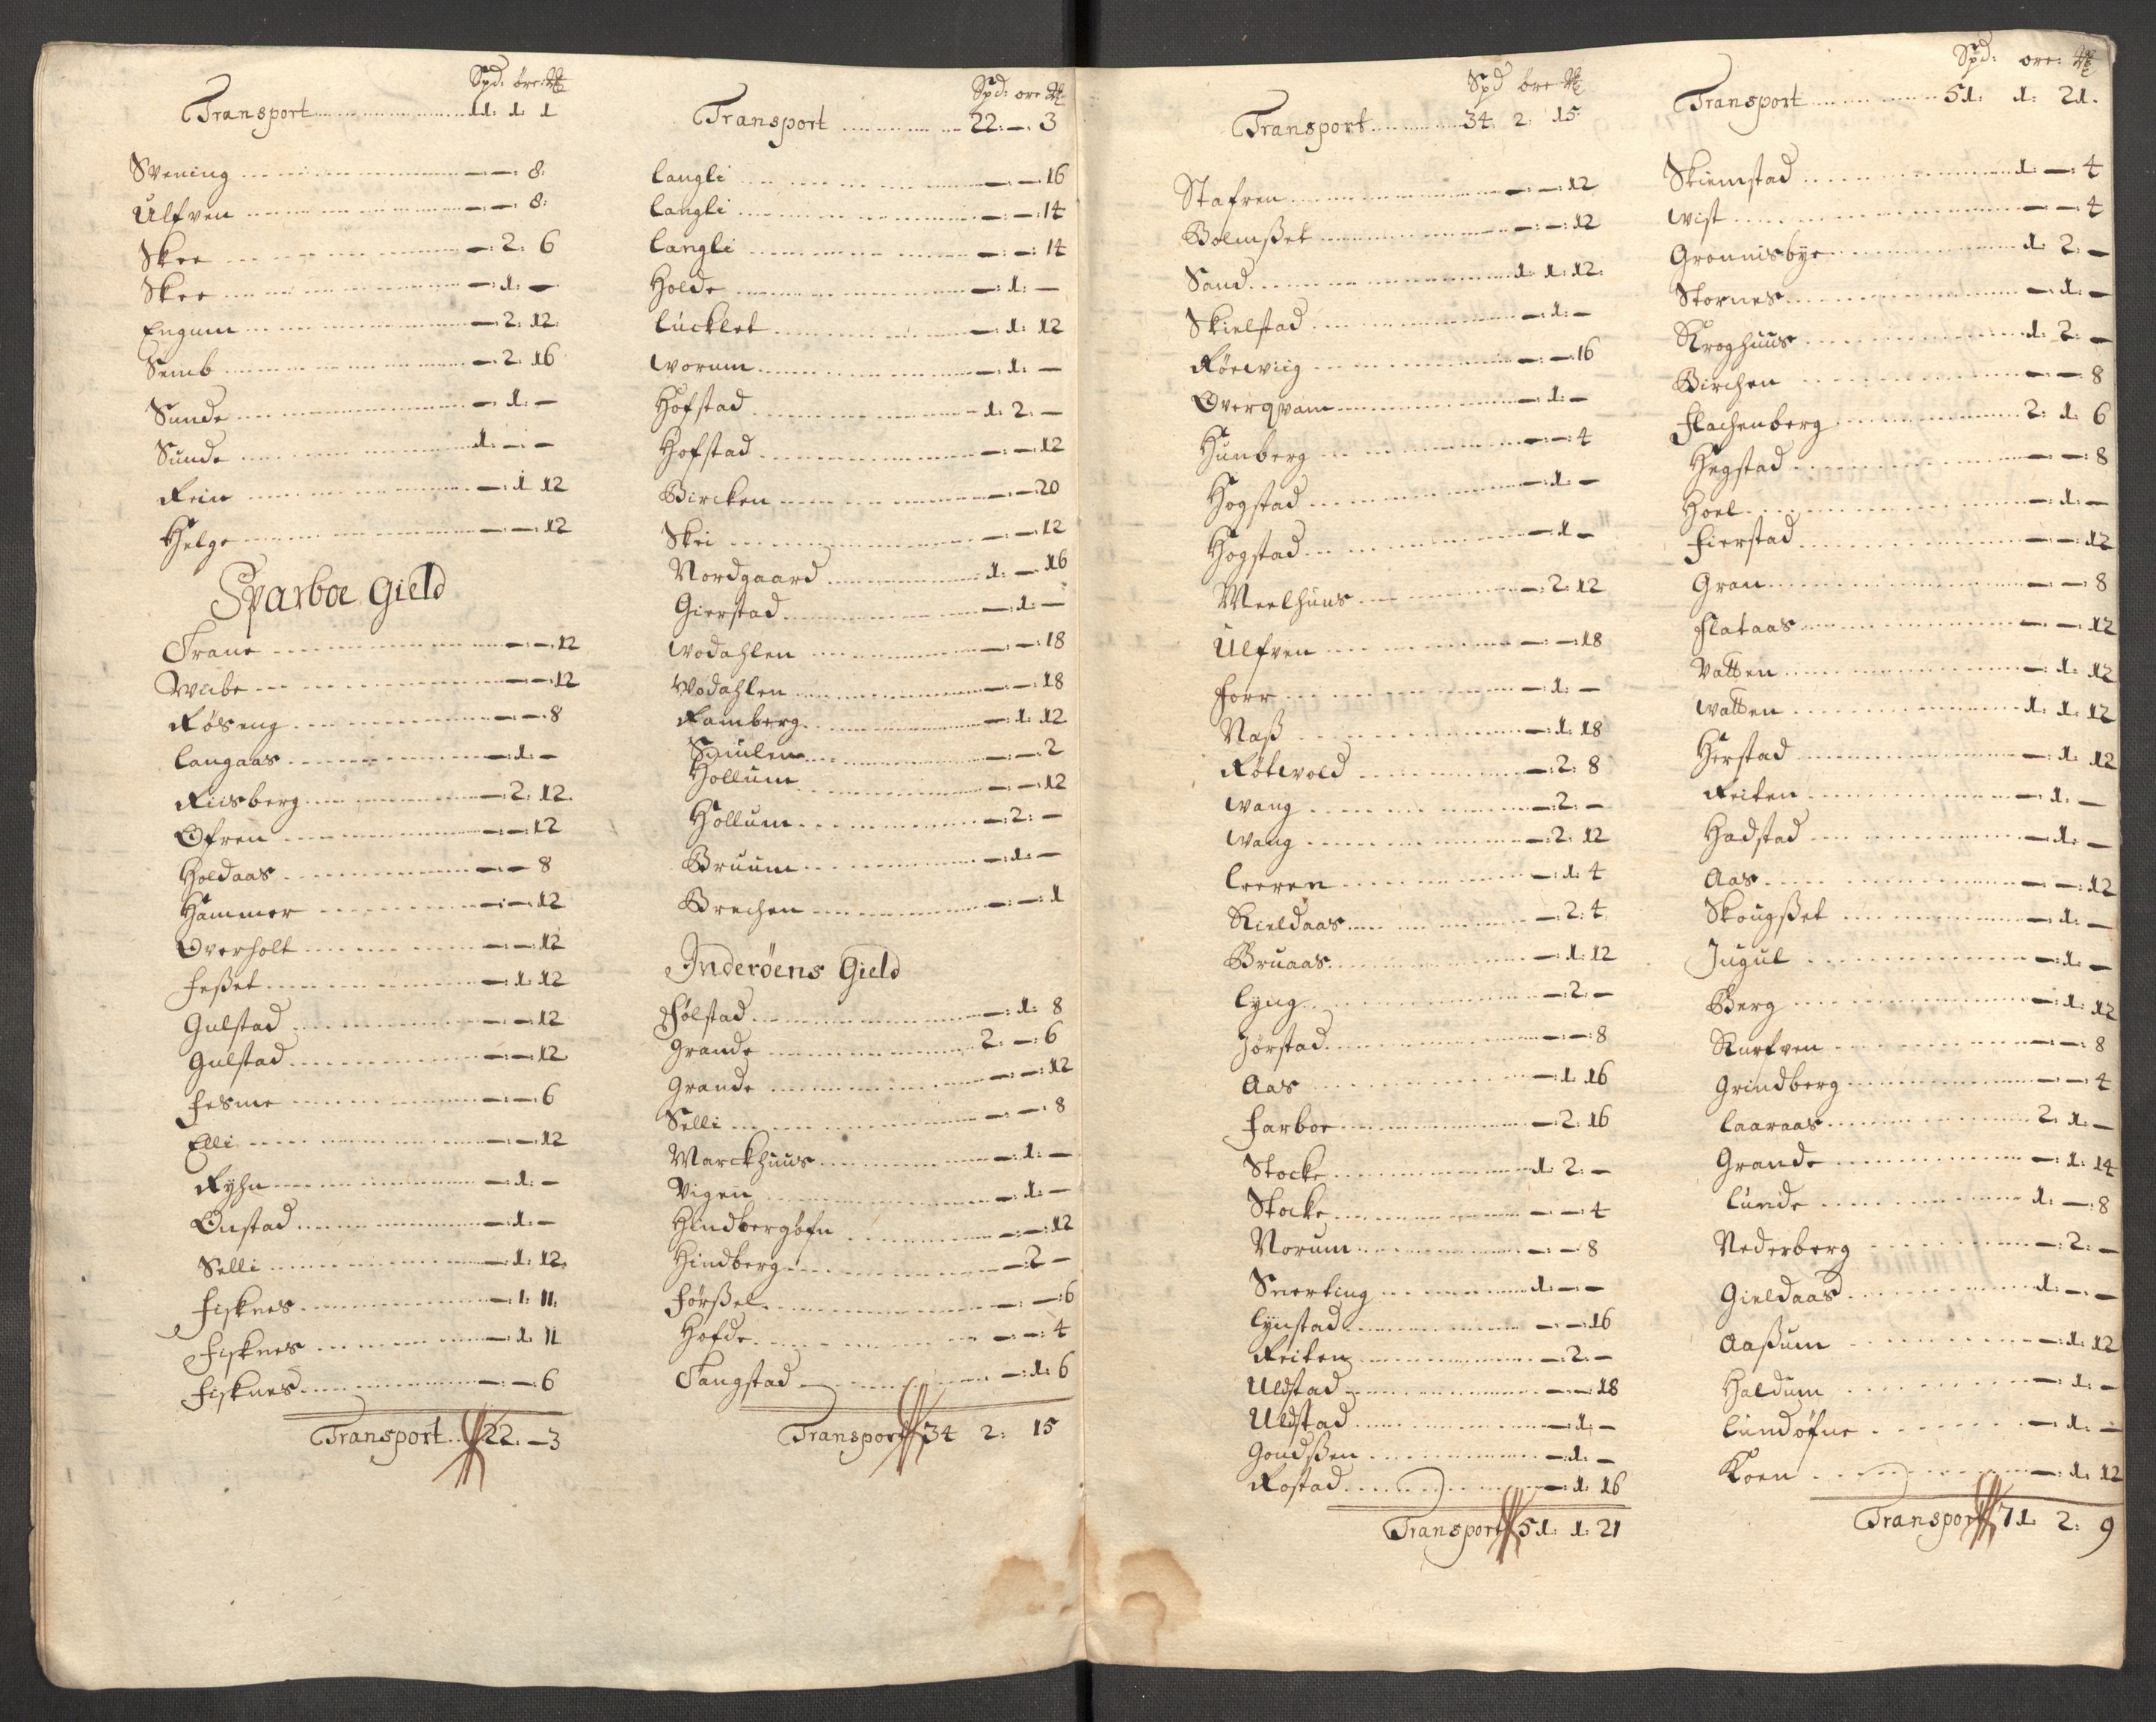 Spd: öre:
Transport 11. 1. 1
Svening — —: 8:
Ulfven — —: 8:
Skee —: 2: 6
Skee —: 1: —
Engum —: 2: 12:
Semb —: 2: 16
Sunde —: 1: —
Sunde 1: —: —
Rein —: 1 12
Helge —: —: 12
Sparboe Gield
Trane —: —: 12
Wibe —: —: 12
Røseng —: —: 8
Langaas —: 1: —
Riisberg —: 2: 12.
Ofren —: —: 12
Holdaas —: — 8
Hammer —: —: 12
Overholt —: —: 12
Feßet —: 1: 12
Gulstad —: —: 12
Gulstad —: —: 12.
Fesme —: —: 6
Elli —: —: 12
Ryhn —: 1: —
Onstad —: 1: —
Selli —: 1: 12.
Fisknes —: 1: 11.
Fisknes —: 1. 11
Fisknes —: —: 6
Transport 22. — 3
Spd: ore
Transport 22. —. 3
Langli —: —: 16
Langli —: —: 14
Langli —: —: 14
Holde —: 1: —
Lucklet —: 1: 12
Worum —: 1: —
Hofstad 1: 2: —
Hofstad —: —: 12
Bircken —: —: 20
Skei —: —: 12
Nordgaard 1: —: 16
Gierstad —: 1: —
Wodahlen —: —: 18
Wodahlen —: —: 18
Ramberg —: 1: 12
—: —: 2
Hollum —: —: 12
Hollum —: 2: —
Bruum —: 1: —
Brechen —: —: 1
Inderöens Gield
Følstad —: 1: 8
Grande 2: —: 6
Grande —: —: 12
Selli —: —: 8
Marckhuus —: 1: —
Vigen —: 1: —
Hindbergöfn —: —: 12
Hindberg —: 2 —
Förßel —: —: 6
Hofde —: —: 4
Tangstad —: 1: 6
Transport 34 2: 15
Spd öre
Transport 34 2: 15
Stafren —: —: 12
Bolmßet —: —: 12
Sand 1: 1: 12:
Skielstad —: 1: —
Röewiig —: —: 16
Overqvam —: 1: —
Hunberg —: —: 4
Hogstad —: 1: —
Hogstad —: 1 —
Meelhuus —: 2: 12
Ulfven —: —: 18
Forr —: 1: —
Naß —: 1: 18
Rötwold —: 2: 8
Wang —: 2: —
Wang —: 2: 12
Leeren —: 1: 4
Kieldaas —: 2: 4
Bruaas —: 1: 12
Lyng —: 2: —
Jörstad —: —: 8
Aas —: 1 16
Farboe —: 2: 16
Stocke 1: 2: —
Stocke —: —: 4
Norum —: —: 8
Snerting 1: —: —
Lynstad —: —: 16
Reiten —: 2: —
Uldstad —: —: 18
Uldstad —: 1: —
Goudßen —: 1: —
Rostad —: 1: 16
Transport 51: 1: 21
Spd: ore:
Transport 51: 1: 21.
Skiemstad 1: —: 4
Wist —: —: 4
Gronnisbye 1: 2: —
Stornes —: 1: —
Kroghuus 1: 2: —
Birchen —: —: 8
Flachenberg 2: 1: 6
Hegstad —: —: 8
Hoel —: 1: —
Fierstad —: —: 12
Gran —: —: 8
Flataas —: —: 12
Vatten —: 1: 12
Watten 1: 1: 12
Herstad —: 1: 12
Reiten —: 1: —
Hadstad —: 1: —
Aas —: —: 12
Skougßet —: 1: —
Jugul —: 1: —
Berg —: 1: 12
Kurfven —: —: 8
Grindberg —: —: 4
Laaraas 2: 1: —
Grande —: 1: 14
Lunde 1: —: 8
Nederberg —: 2: —
Gieldaas 1: —: —
Aaßum —: 1: 12
Haldum —: 1: —
Lundöfne —: 1: —
Koen —: 1: 12
Transport 71. 2: 9